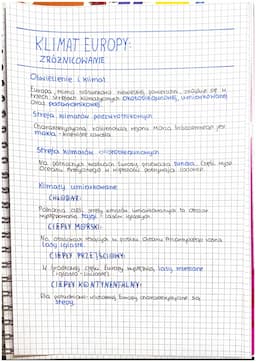 KLIMAT EUROPY:
ZRÓŻNICOWANIE
Oświetlenie i klimat
Europa, mimo stosunkowo niewielkiej powierzchni, znajduje się w
trzech strefach klimatycznych okołobiegunowej, umiarkowanej
oraz podzwrotnikowej.
Strefa klimatów podzwrotnikowych
Charakterystyczną roślinnością rejonu Morza Śródziemnego jest
makia - krzewiste zarośla.
Strefa klimatów okołobiegunowych
Na północnych krańcach Europy przeważa tundra. Część wysp
Oceanu Arktycznego w większości pokrywają lodowce.
Klimaty umiarkowane
CHŁODNY:
Północna część strefy klimatów umiarkowanych to obszar
występowania tajgi - lasów iglastych.
CIEPŁY MORSKI:
Na obszarach leżących w pobliżu Oceanu Atlantyckiego rosną
lasy liściaste.
CIEPŁY PRZEJŚCIOWY:
W środkowej części Europy występują lasy mieszane
(iglasto-liściaste).
CIEPŁY KONTYNENTALNY:
Dla południowo-wschodniej Europy charakterystyczne są
stepy.